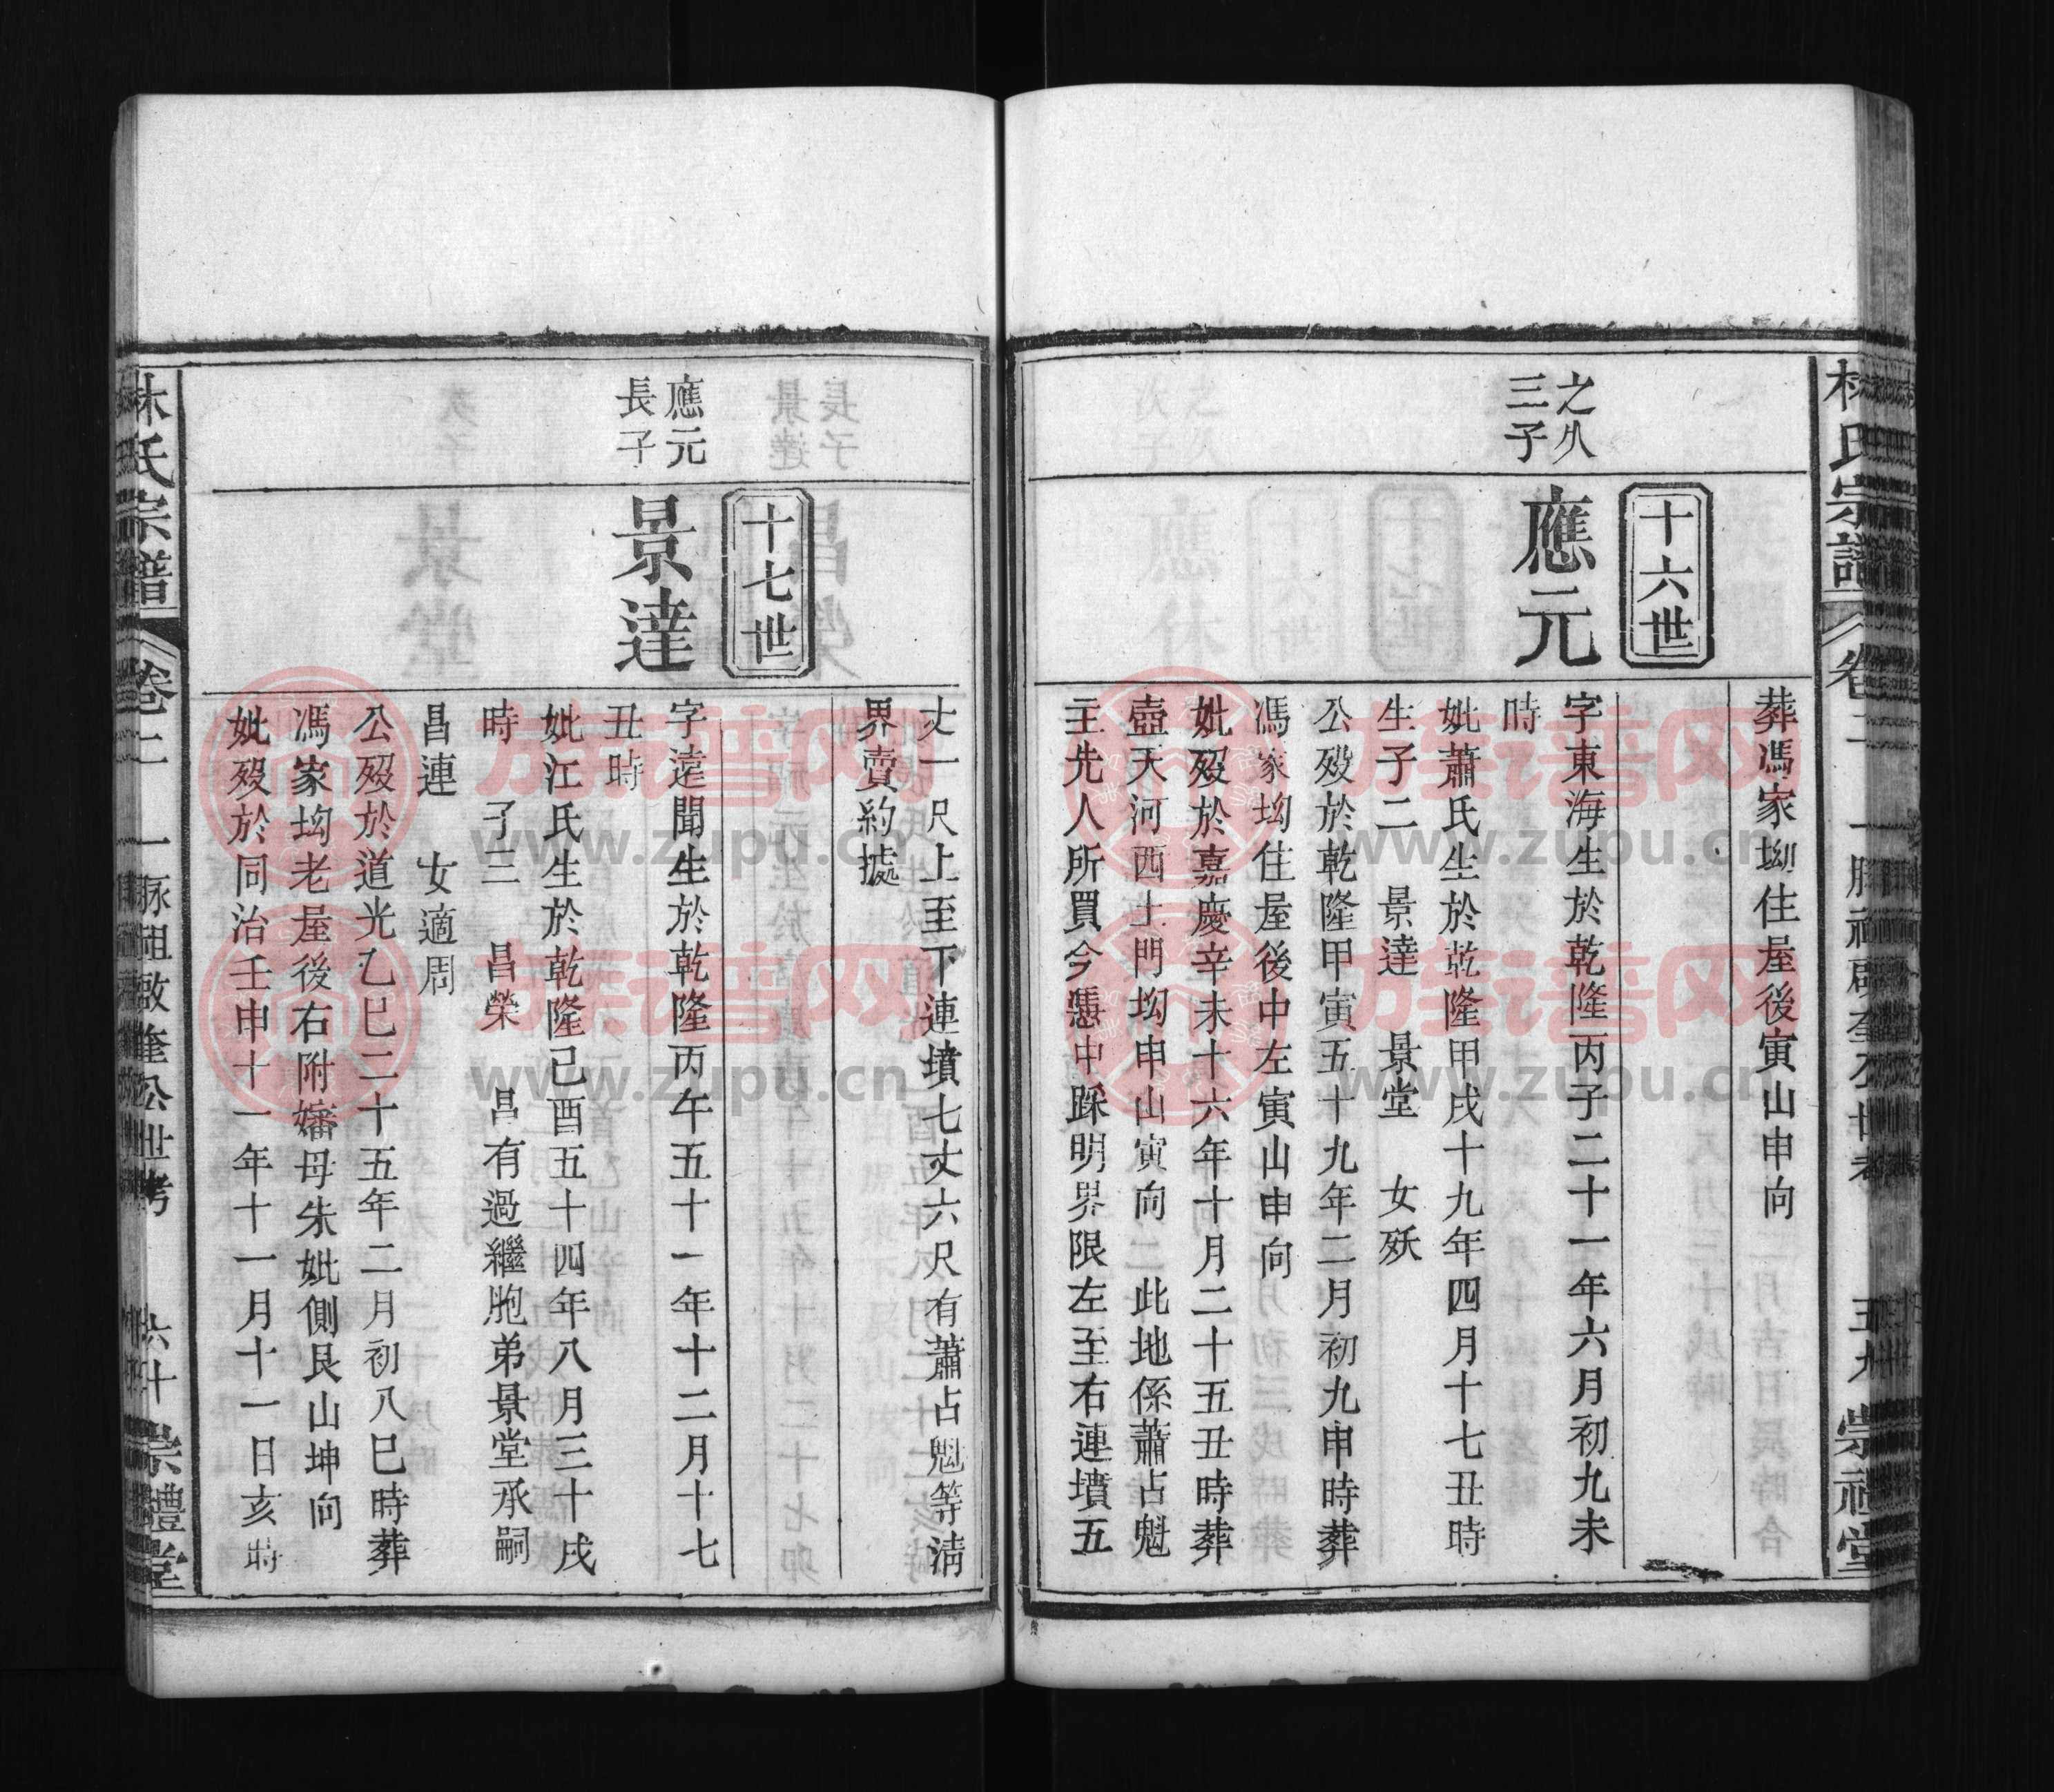 林氏宗譜
卷二
五九
葬馮家坳住屋後寅山申向
十六世
之久
三子
應元
字東海生於乾隆丙子二十一年六月初九未
時
妣蕭氏生於乾隆甲戌十九年四月十七丑時
生子二 景達 景堂 女殀
公歿於乾隆甲寅五十九年二月初九申時葬
馮家坳住屋後中左寅山申向
妣歿於嘉慶辛未十六年十月二十五丑時葬
壺天河西土門坳申山寅向 此地係蕭占魁
主先人所買今憑中踩明界限左至右連墳五
丈一尺上至下連墳七丈六尺有蕭占魁等淸
界賣約據
十七世
應元
長子
景達
字遠聞生於乾隆丙午五十一年十二月十七
丑時
妣江氏生於乾隆己酉五十四年八月三十戌
時 子三 昌榮 昌有過繼胞弟景堂承嗣
昌連 女適周
公歿於道光乙巳二十五年二月初八巳時葬
馮家坳老屋後右附嬸母朱妣側艮山坤向
妣歿於同治壬申十一年十一月十一日亥時
林氏宗譜
卷二
一脉祖啟奎公世考
六十
崇禮堂
族谱网
www.zupu.cn
族谱网
www.zupu.cn
族谱网
www.zupu.cn
族谱网
www.zupu.cn